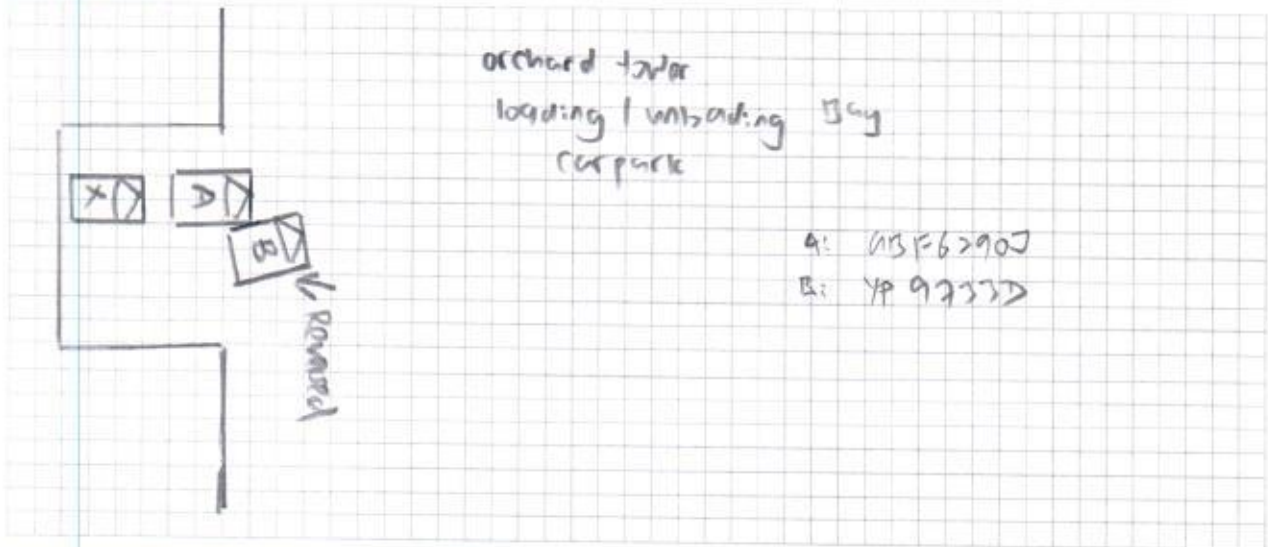 orchard tower
loading / unloading Bay
carpark
X
A
B
Reversed
A: GBF6290J
B: YP 9733D